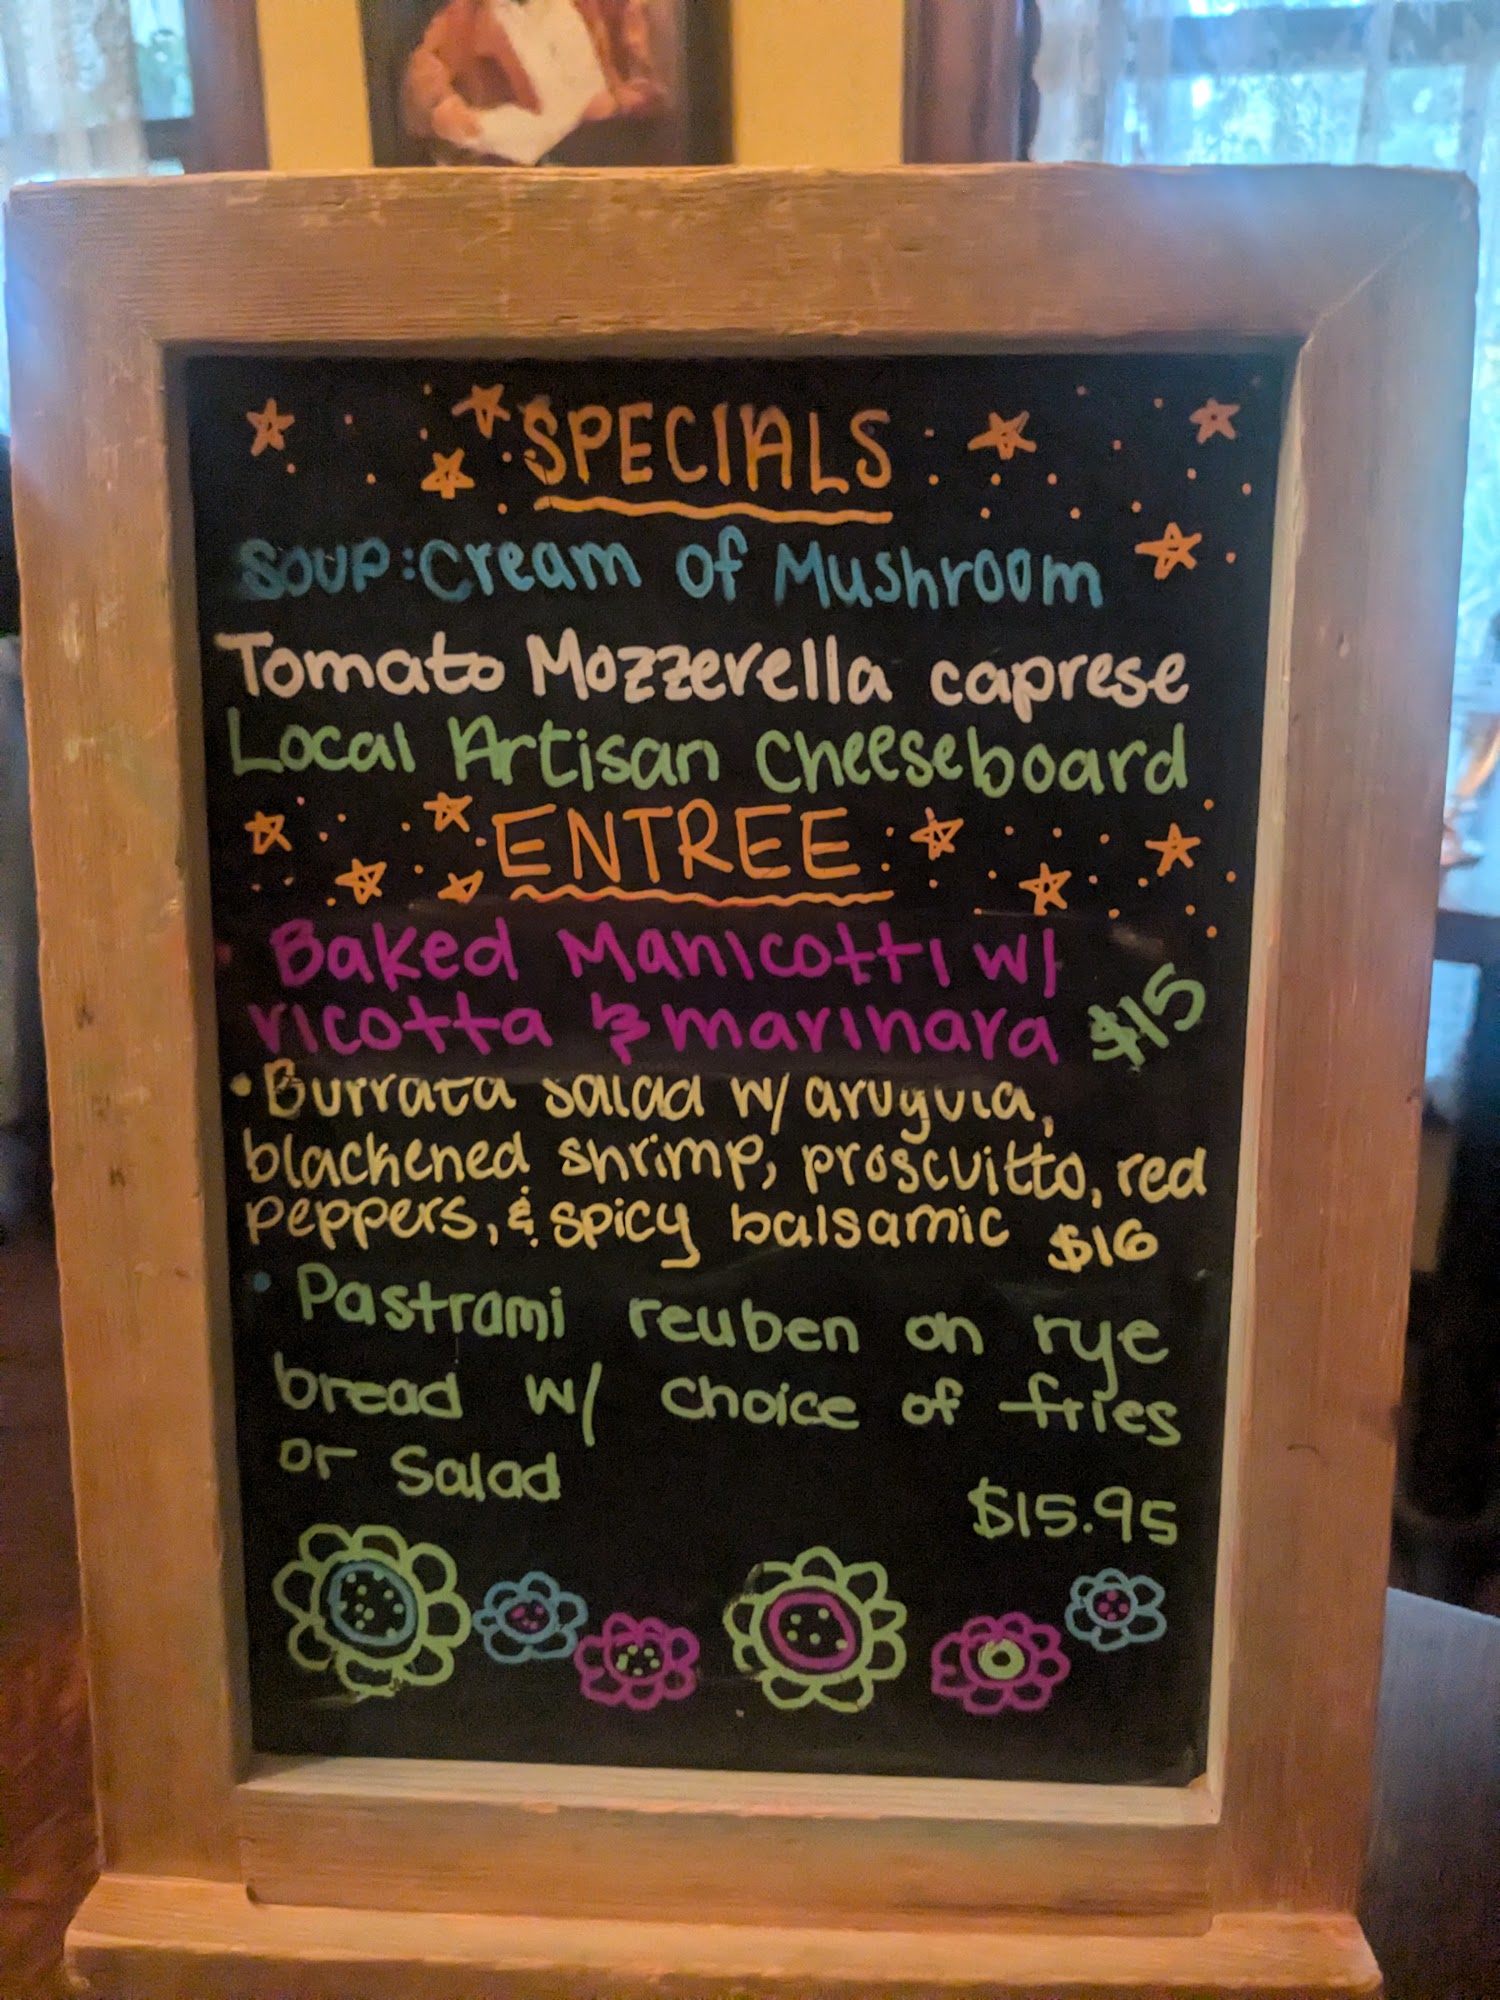 SPECIALS
SOUP: Cream of Mushroom
Tomato Mozzerella caprese
Local Artisan Cheeseboard
ENTREE
Baked Manicotti w/
ricotta & marinara $15
• Burrata salad w/ aruguia,
blackened shrimp, proscuitto, red
peppers, & spicy balsamic $16
• Pastrami reuben on rye
bread w/ choice of fries
or Salad
$15.95